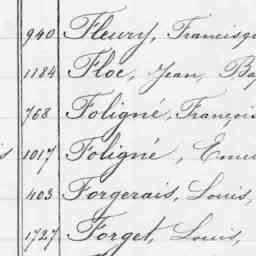 940 Fleury, Francisq
1184 Floc, Jean, Ba
768 Foligné, François
1017 Foligné, Em
403 Forgerais, Louis,
1727 Forget, Louis,